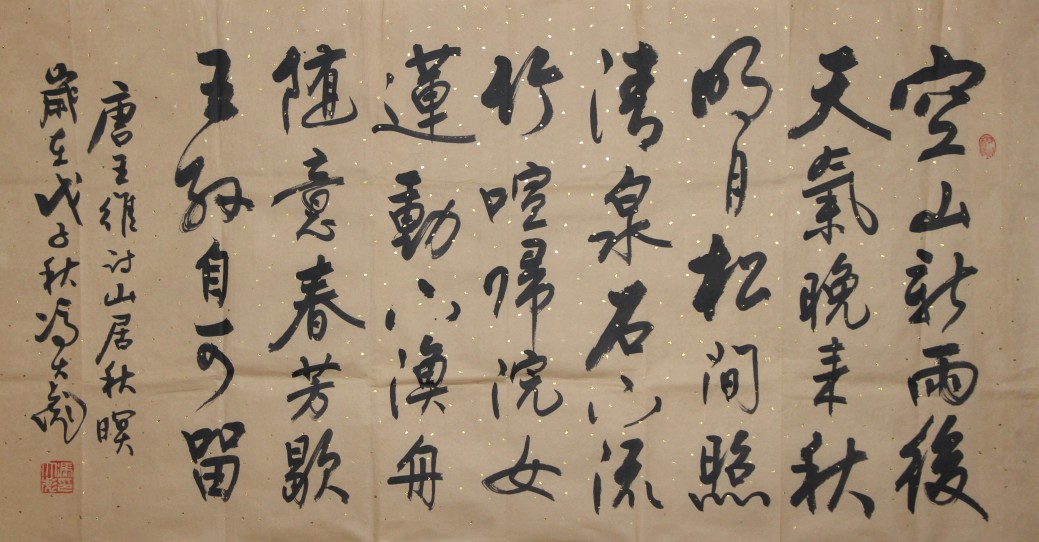 空山新雨後
天氣晚来秋
明月松間照
清泉石上流
竹喧歸浣女
蓮動下漁舟
随意春芳歇
王孫自可留
唐王維诗山居秋暝
歲在戊子秋冯大彪